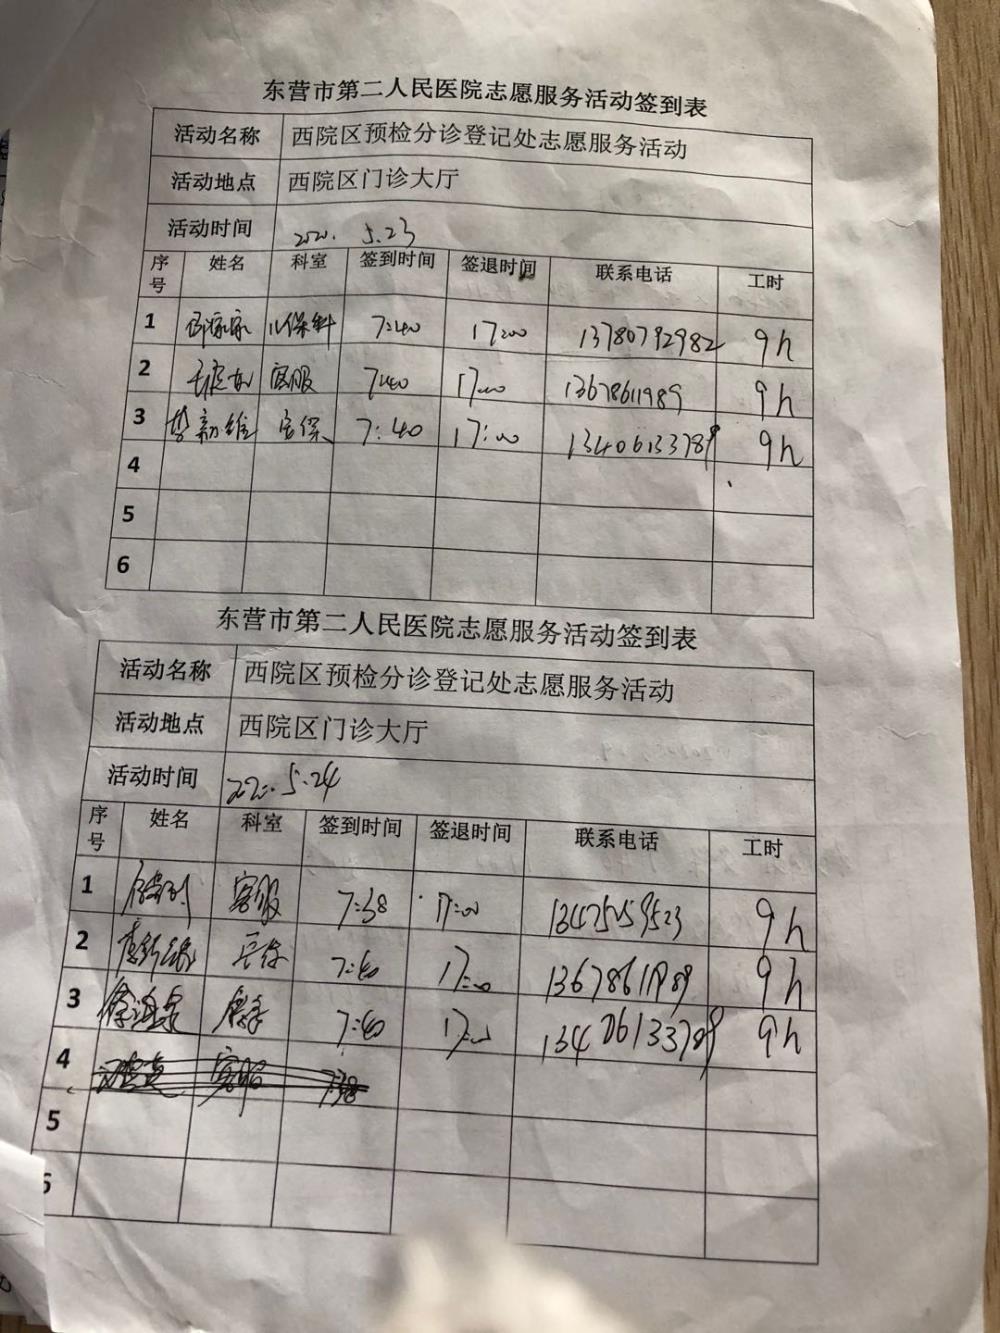 东营市第二人民医院志愿服务活动签到表
活动名称 西院区预检分诊登记处志愿服务活动
活动地点 西院区门诊大厅
活动时间 2020. 5.23
序号 姓名 科室 签到时间 签退时间 联系电话 工时
1 儿保科 7:40 17:00 13780792982 9h
2 客服 7:40 17:00 13678611989 9h
3 7:40 17:00 13406133789 9h
4
5
6
东营市第二人民医院志愿服务活动签到表
活动名称 西院区预检分诊登记处志愿服务活动
活动地点 西院区门诊大厅
活动时间 2020. 5.24
序号 姓名 科室 签到时间 签退时间 联系电话 工时
1 客服 7:38 17:00 13475259523 9h
2 7:40 17:00 13678611989 9h
3 7:40 17:00 13406133789 9h
4 客服 7:38
5